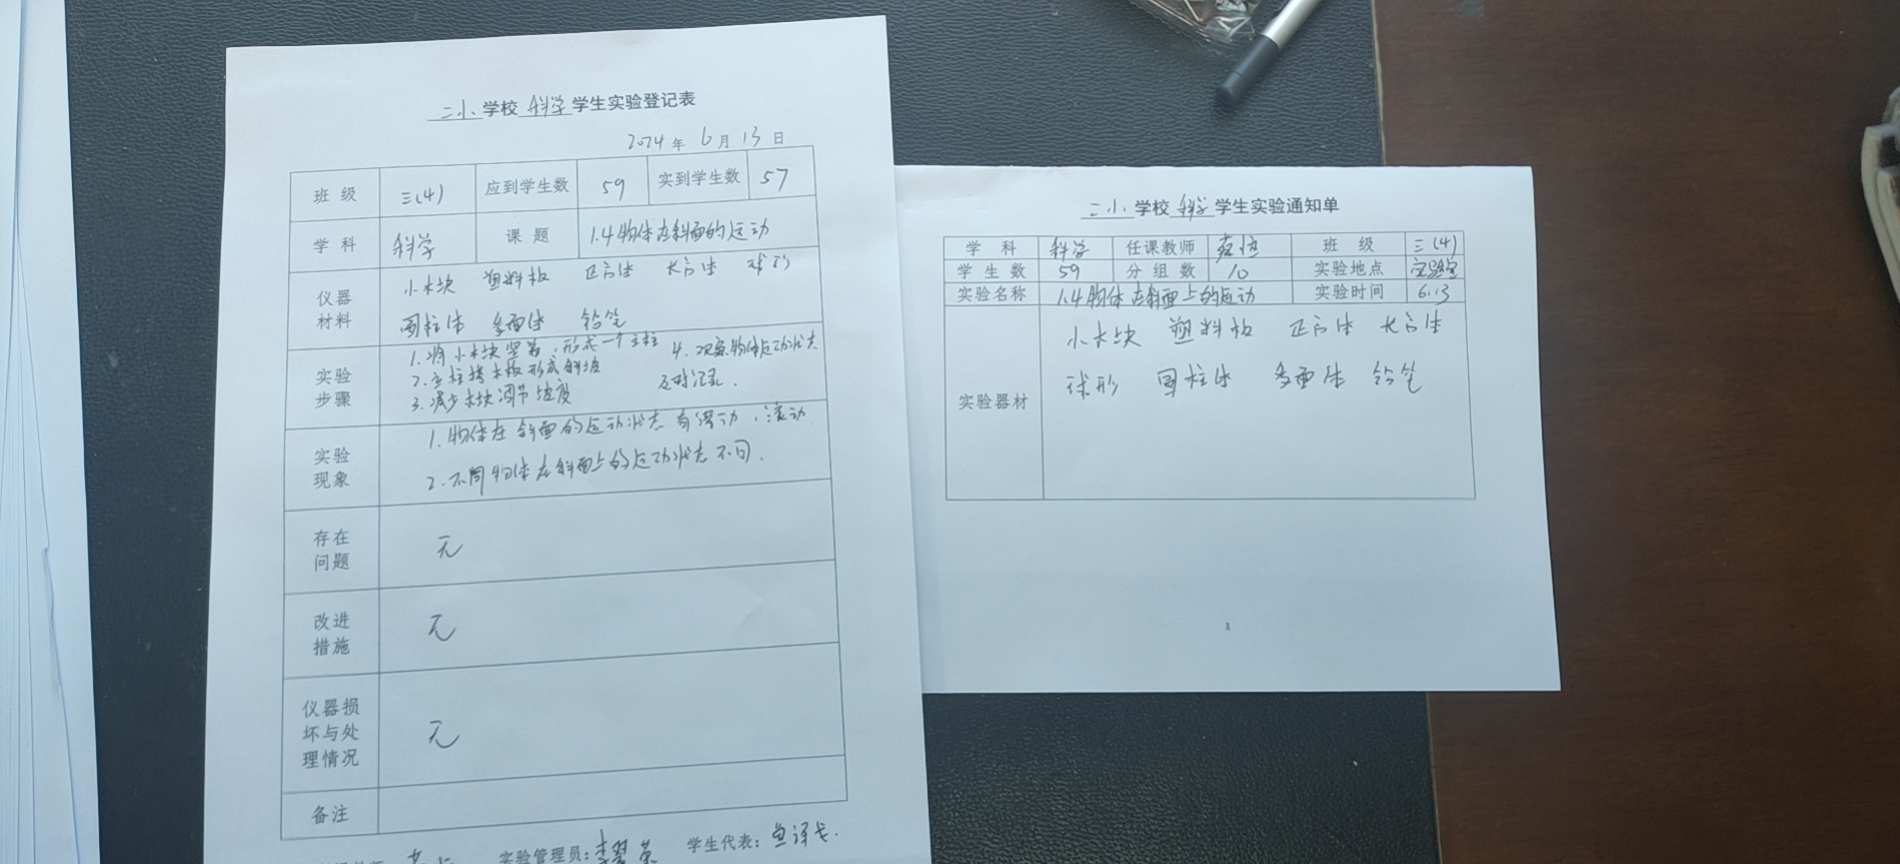 二小学校科学学生实验登记表
2024年6月13日
班级 三(4) 应到学生数 59 实到学生数 57
学科 科学 课题 1.4物体在斜面的运动
仪器材料
小木块 塑料板 正方体 长方体 球形
圆柱体 多面体 铅笔
实验步骤
1.将小木块竖着,形成一个立柱
2.立柱搭木板形成斜坡
3.减少木块调节坡度
4.观察物体运动状态
及时记录.
实验现象
1.物体在斜面的运动状态有滑动、滚动.
2.不同物体在斜面上的运动状态不同.
存在问题 无
改进措施 无
仪器损坏与处理情况 无
备注
实验管理员: 学生代表:
二小学校科学学生实验通知单
学科 科学 任课教师 班级 三(4)
学生数 59 分组数 10 实验地点 实验室
实验名称 1.4物体在斜面上的运动 实验时间 6.13
实验器材
小木块 塑料板 正方体 长方体
球形 圆柱体 多面体 铅笔